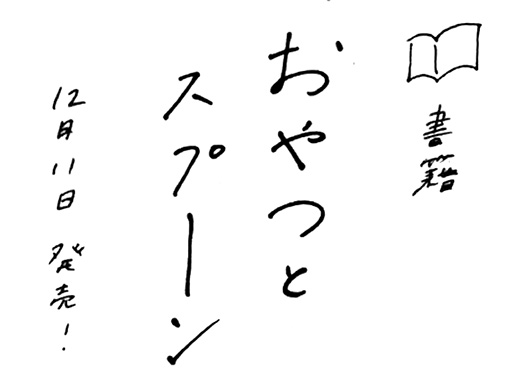 書籍
おやつと
スプーン
12月11日 発売!